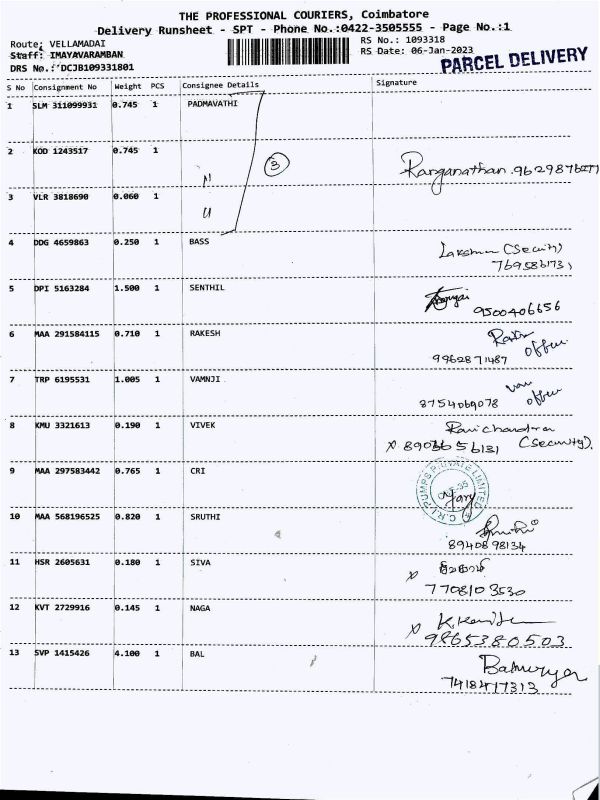 THE PROFESSIONAL COURIERS, Coimbatore
Delivery Runsheet - SPT - Phone No.:0422-3505555 - Page No.:1
Route: VELLAMADAI
RS No.: 1093318
Staff: IMAYAVARAMBAN
RS Date: 06-Jan-2023
PARCEL DELIVERY
DRS No.: DCJB109331801
S No Consignment No Weight PCS Consignee Details Signature
1 SLM 311099931 0.745 1 PADMAVATHI
2 KOD 1243517 0.745 1
3
Ranganathan.
3 VLR 3818690 0.060 1
4 DDG 4659863 0.250 1 BASS
Lakshman (Security)
5 DPI 5163284 1.500 1 SENTHIL
9500406656
6 MAA 291584115 0.710 1 RAKESH
9962871487
7 TRP 6195531 1.005 1 VAMNJI
8754069078
8 KMU 3321613 0.190 1 VIVEK
Ravichandran
x 8903656131 (Security).
9 MAA 297583442 0.765 1 CRI
C.R.I. PUMPS PRIVATE LIMITED
Mary
10 MAA 568196525 0.820 1 SRUTHI
Sruthi
8940898134
11 HSR 2605631 0.180 1 SIVA
x
7708103530
12 KVT 2729916 0.145 1 NAGA
x
9865380503
13 SVP 1415426 4.100 1 BAL
7418417313